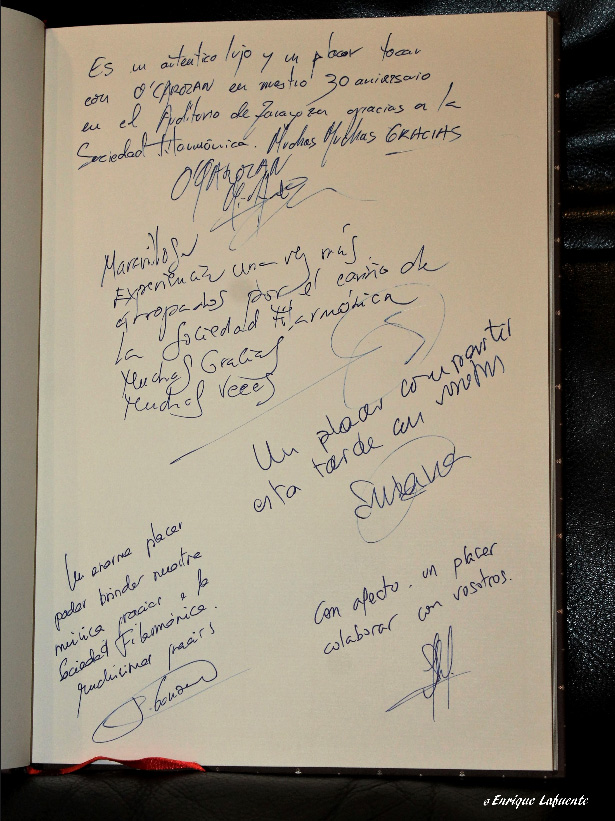 Es un auténtico lujo y un placer tocar
con O'CAROZAN en nuestro 30 aniversario
en el Auditorio de Zaragoza gracias a la
Sociedad Filarmónica. Muchas Muchas GRACIAS
O'CAROZAN
Maravillosa
Experiencia una vez más
arropados por el cariño de
la Sociedad Filarmónica
Muchas Gracias
Muchas veces
Un placer compartir
esta tarde con vosotros
Susana
Un enorme placer
poder brindar nuestra
música gracias a la
Sociedad Filarmónica.
Muchísimas gracias
Con afecto. un placer
colaborar con vosotros.
© Enrique Lafuente